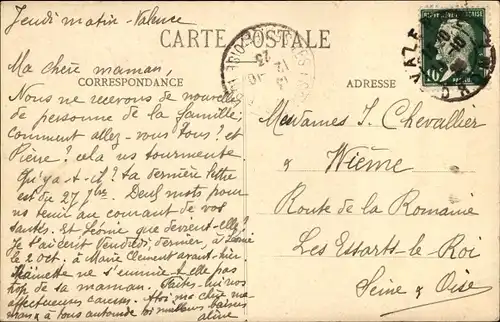 Jeudi matin - Valence
CARTE POSTALE
CORRESPONDANCE
ADRESSE
Ma chère maman,
Nous ne recevons de nouvelles
de personne de la famille;
comment allez-vous tous? et
Pierre? cela us tourmente.
Qu'y a-t-il? ta dernière lettre
est du 27 7bre. Deux mots pour
ns tenir au courant de vos
santés. Et Léonie que devient-elle?
Je t'ai écrit Vendredi dernier, à
le 2 oct. à Marie Clement avant-hier.
ne s'ennuie-t-elle pas
trop de sa maman. Faites-lui nos
affectueuses causes. A toi ma chère ma-
man & à tous autour de toi meilleurs baisers
aline
Mesdames J. Chevallier
& Wième
Route de la Romanie
Les Essarts-le-Roi
Seine & Oise